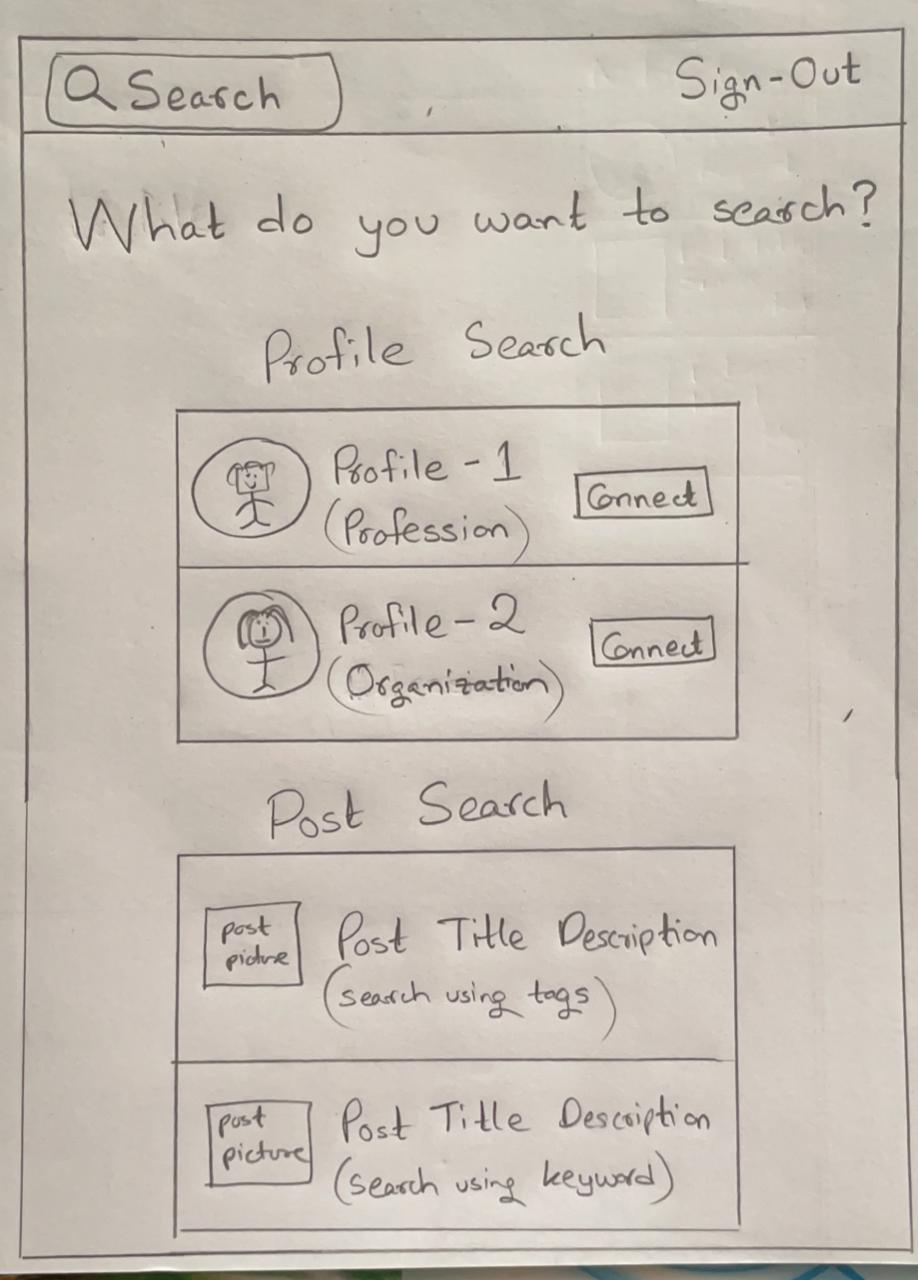 Search
Sign-Out
What do you want to search?
Profile Search
Profile - 1
(Profession)
Connect
Profile - 2
(Organization)
Connect
Post Search
post
picture
Post Title Description
(search using tags)
post
picture
Post Title Description
(search using keyword)